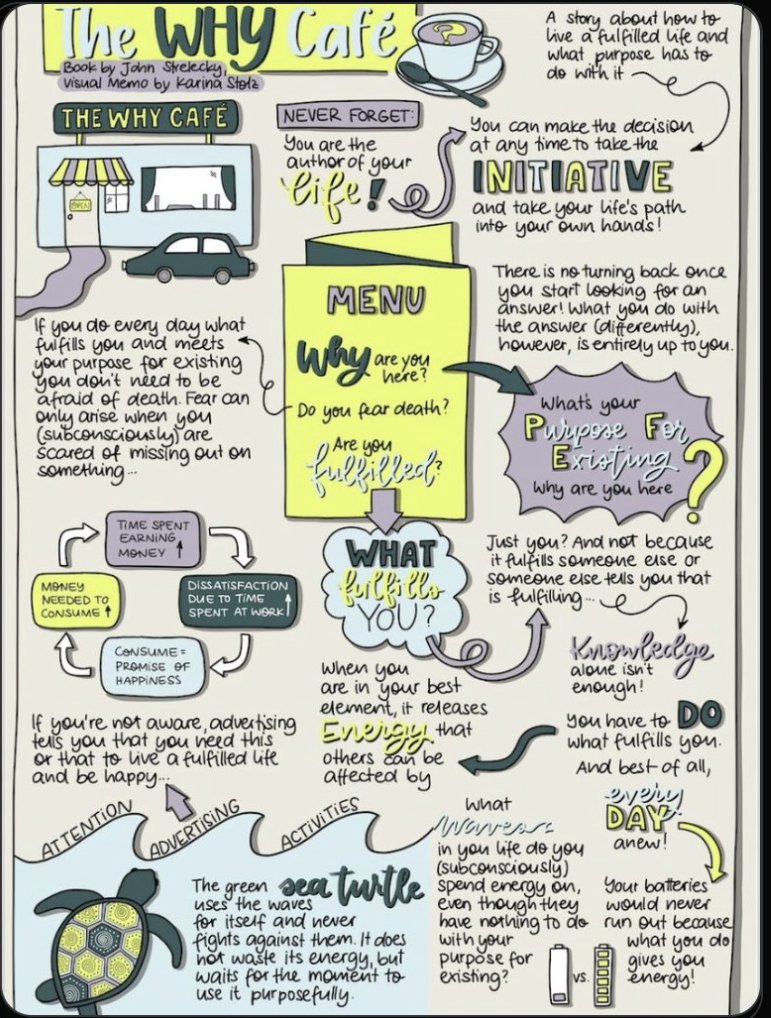 The WHY Café
Book by John Strelecky,
Visual Memo by Karina Stolz
A story about how to
live a fulfilled life and
what purpose has to
do with it
THE WHY CAFÉ
OPEN
NEVER FORGET:
You are the
author of your
life!
You can make the decision
at any time to take the
INITIATIVE
and take your life's path
into your own hands!
MENU
Why are you
here?
Do you fear death?
Are you
fulfilled?
There is no turning back once
you start looking for an
answer! What you do with
the answer (differently),
however, is entirely up to you.
If you do every day what
fulfills you and meets
your purpose for existing
you don't need to be
afraid of death. Fear can
only arise when you
(subconsciously) are
scared of missing out on
something...
What's your
Purpose For
Existing
Why are you here
?
WHAT
fulfills
YOU?
Just you? And not because
it fulfills someone else or
someone else tells you that
is fulfilling...
TIME SPENT
EARNING
MONEY
DISSATISFACTION
DUE TO TIME
SPENT AT WORK
CONSUME =
PROMISE OF
HAPPINESS
MONEY
NEEDED TO
CONSUME
Knowledge
alone isn't
enough!
You have to DO
what fulfills you.
And best of all,
every
DAY
anew!
When you
are in your best
element, it releases
Energy that
others can be
affected by
If you're not aware, advertising
tells you that you need this
or that to live a fulfilled life
and be happy...
ATTENTION
ADVERTISING
ACTIVITIES
The green sea turtle
uses the waves
for itself and never
fights against them. It does
not waste its energy, but
waits for the moment to
use it purposefully.
What
waves
in you life do you
(subconsciously)
spend energy on,
even though they
have nothing to do
with your
purpose for
existing?
vs.
Your batteries
would never
run out because
what you do
gives you
energy!